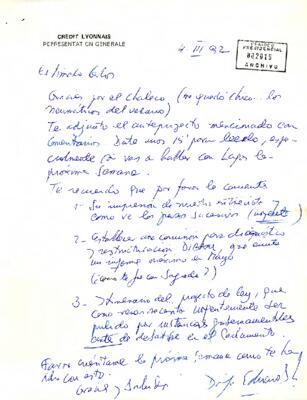 CREDIT LYONNAIS
REPRESENTATION GENERALE
4 III 92
PERIODO
PRESIDENCIAL
002015
ARCHIVO
Estimado Carlos
Gracias por el chaleco (me quedó chico... los
neumáticos del verano)
Te adjunto el anteproyecto mencionado con
comentarios. Date unos 15' para leerlo, espe-
cialmente si vas a hablar con Lagos la
próxima semana.
Te recuerdo que por favor le comente
1- Su impresión de nuestra entrevista y
como ve los pasos sucesivos (urgente)
2- Establecer una comisión para diagnóstico
y reestructuración, que emita
un informe máximo en Mayo
(como te fue con Sagrado?)
3- Itinerario del proyecto de ley, que
como reconocerás urgentemente ser
pulido por instancias gubernamentales
antes de debatir en el Parlamento.
Favor cuéntame la próxima semana como te hay
ido con esto.
Gracias y Saludos